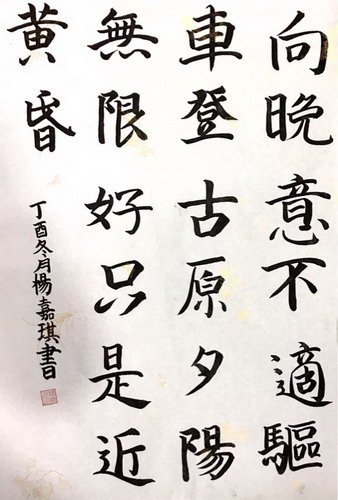 向晚意不適驅
車登古原夕陽
無限好只是近
黃昏
丁酉冬月楊嘉琪書